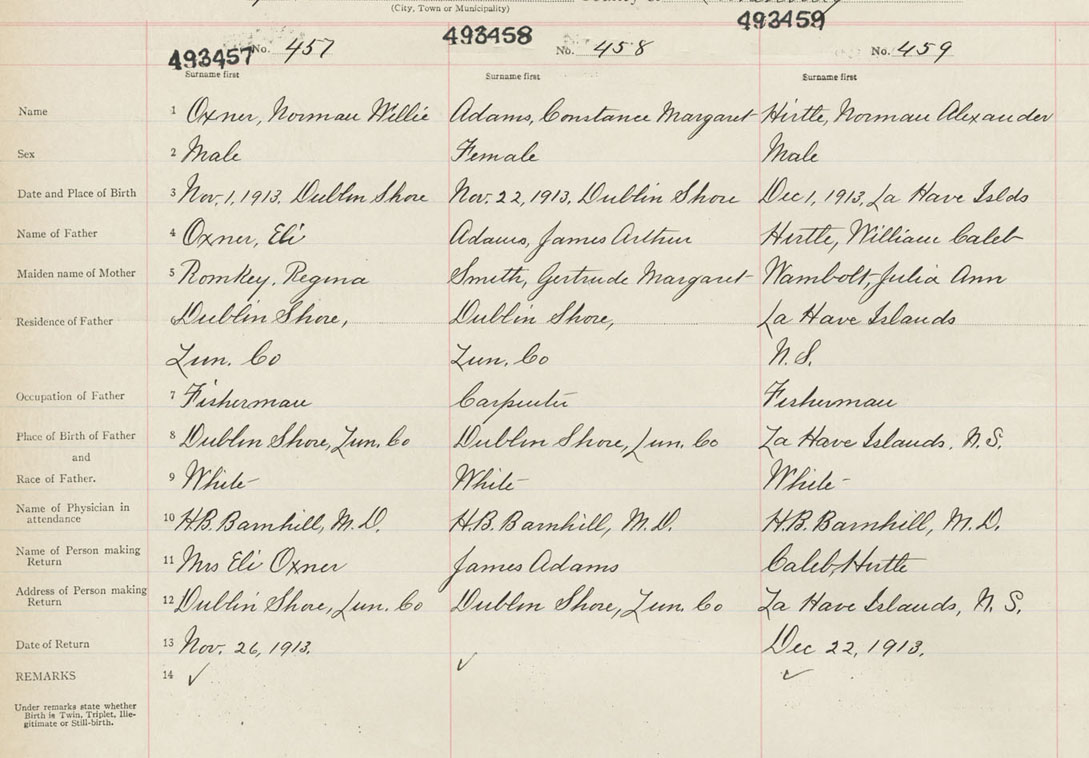 (City, Town or Municipality)
493457 No. 457 493458 No. 458 493459 No. 459
Surname first Surname first Surname first
Name 1 Oxner, Norman Willie Adams, Constance Margaret Hirtle, Norman Alexander
Sex 2 Male Female Male
Date and Place of Birth 3 Nov. 1, 1913, Dublin Shore Nov. 22, 1913, Dublin Shore Dec 1, 1913, La Have Islds
Name of Father 4 Oxner, Eli Adams, James Arthur Hirtle, William Caleb
Maiden name of Mother 5 Romkey, Regina Smith, Gertrude Margaret Wambolt, Julia Ann
Residence of Father Dublin Shore, Dublin Shore, La Have Islands
Lun. Co Lun. Co N.S.
Occupation of Father 7 Fisherman Carpenter Fisherman
Place of Birth of Father 8 Dublin Shore, Lun. Co Dublin Shore, Lun. Co La Have Islands, N.S.
and
Race of Father. 9 White White White
Name of Physician in attendance 10 H.B. Barnhill, M.D. H.B. Barnhill, M.D. H.B. Barnhill, M.D.
Name of Person making Return 11 Mrs Eli Oxner James Adams Caleb Hirtle
Address of Person making Return 12 Dublin Shore, Lun. Co Dublin Shore, Lun. Co La Have Islands, N.S.
Date of Return 13 Nov. 26, 1913. Dec 22, 1913.
REMARKS 14 ✓ ✓ ✓
Under remarks state whether
Birth is Twin, Triplet, Ille-
gitimate or Still-birth.